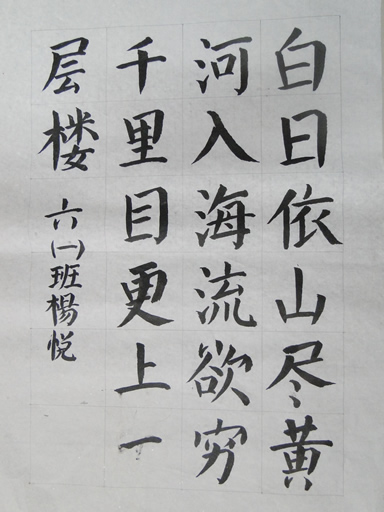 白日依山尽黄
河入海流欲穷
千里目更上一
层楼 六(一)班楊悦